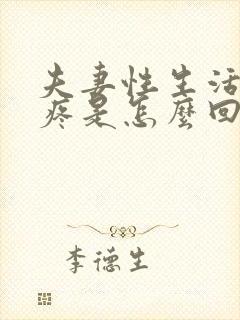 夫妻性生活
疼是怎麼回
李德生